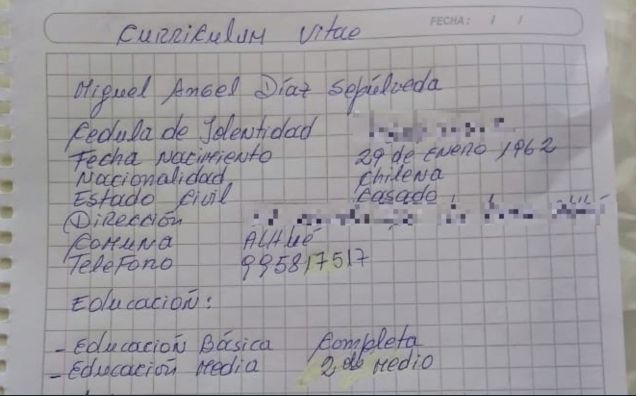 FECHA: / /
Curriculum Vitae
Miguel Angel Díaz Sepúlveda
Cedula de Identidad
Fecha Nacimiento 29 de enero 1962
Nacionalidad Chilena
Estado Civil Casado
Dirección
Comuna Alhué
Telefono 995817517
Educación:
- Educación Básica Completa
- Educación Media 2do Medio